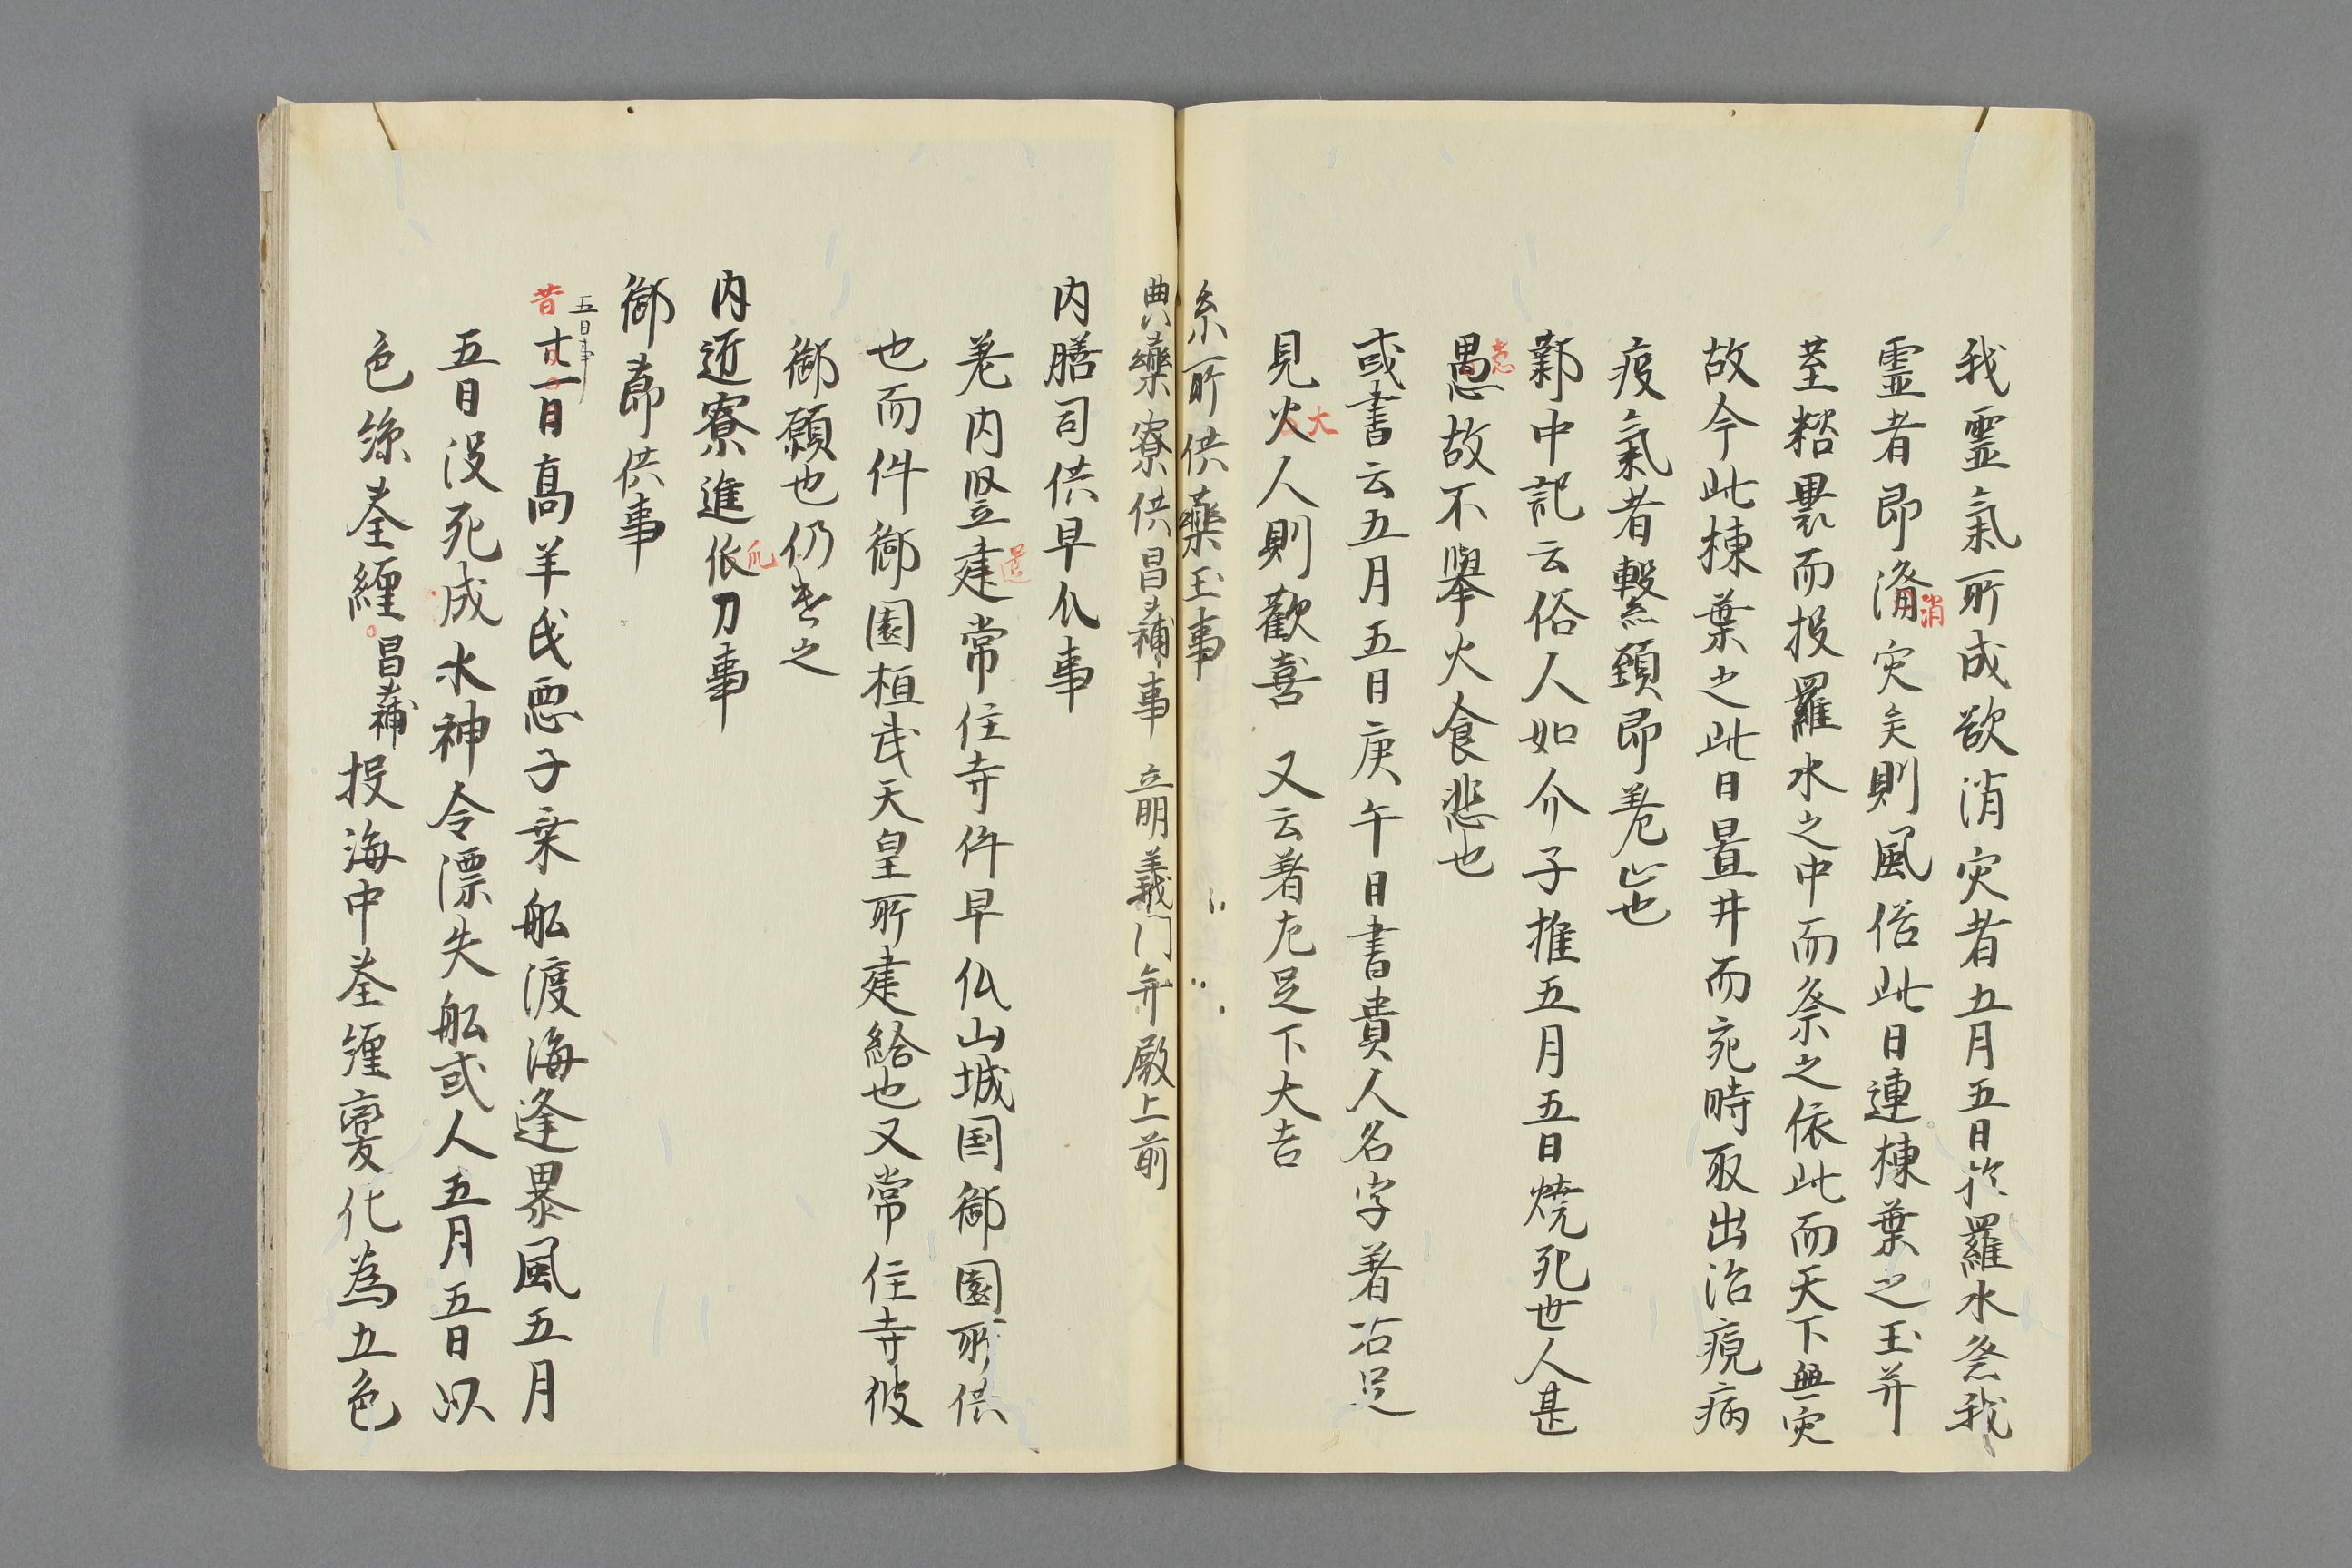 我霊氣所成欲消灾者五月五日於羅水祭我
霊者即消灾矣則風俗此日連楝葉之玉并
茎粽褁而投羅水之中而祭之依此而天下無灾
故今此楝葉之此日置井而宛時取出治病
疫氣者繋頚即差止也
鄴中記云俗人如介子推五月五日焼死世人甚
愚故不擧火食悲也
或書云五月五日庚午日書貴人名字著右足
見火人則歡喜 又云著左足下大吉
糸所供藥玉事
典藥寮供昌蒲事 立明義門并殿上前
内膳司供早瓜事
差内竪建常住寺件早瓜山城国御園所供
也而件御園桓武天皇所建給也又常住寺彼
御願也仍送之
内匠寮進依刀事
御節供事
五日事
十一月高羊氏悪子乗舩渡海逢暴風五月
五日没死成水神令漂失舩或人五月五日以
色絲荃纏昌蒲投海中荃纏變化為五色
消
恚
大
遣
爪
昔